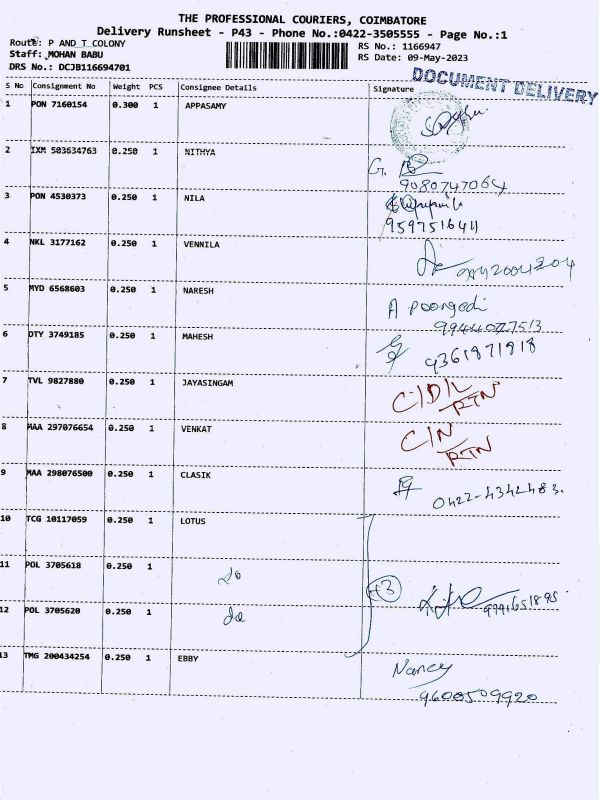 THE PROFESSIONAL COURIERS, COIMBATORE
Delivery Runsheet - P43 - Phone No.:0422-3505555 - Page No.:1
Route: P AND T COLONY
Staff: MOHAN BABU
DRS No.: DCJB116694701
RS No.: 1166947
RS Date: 09-May-2023
DOCUMENT DELIVERY
S No Consignment No Weight PCS Consignee Details Signature
1 PON 7160154 0.300 1 APPASAMY
2 IXM 503634763 0.250 1 NITHYA
G.
9080747064
3 PON 4530373 0.250 1 NILA
9597516411
4 NKL 3177162 0.250 1 VENNILA
5 MYD 6568603 0.250 1 NARESH
A poongodi
9944027513
6 OTY 3749185 0.250 1 MAHESH
9361971918
7 TVL 9827880 0.250 1 JAYASINGAM
C/D/L
RTN
8 MAA 297076654 0.250 1 VENKAT
C/N
RTN
9 MAA 298076500 0.250 1 CLASIK
0422-4342483.
10 TCG 10117059 0.250 1 LOTUS
11 POL 3705618 0.250 1 do
+3
12 POL 3705620 0.250 1 do
13 TMG 200434254 0.250 1 EBBY
Nancy
9600509920